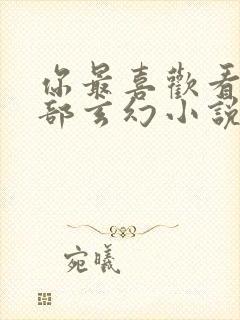 你最喜歡看
部玄幻小說
宛曦